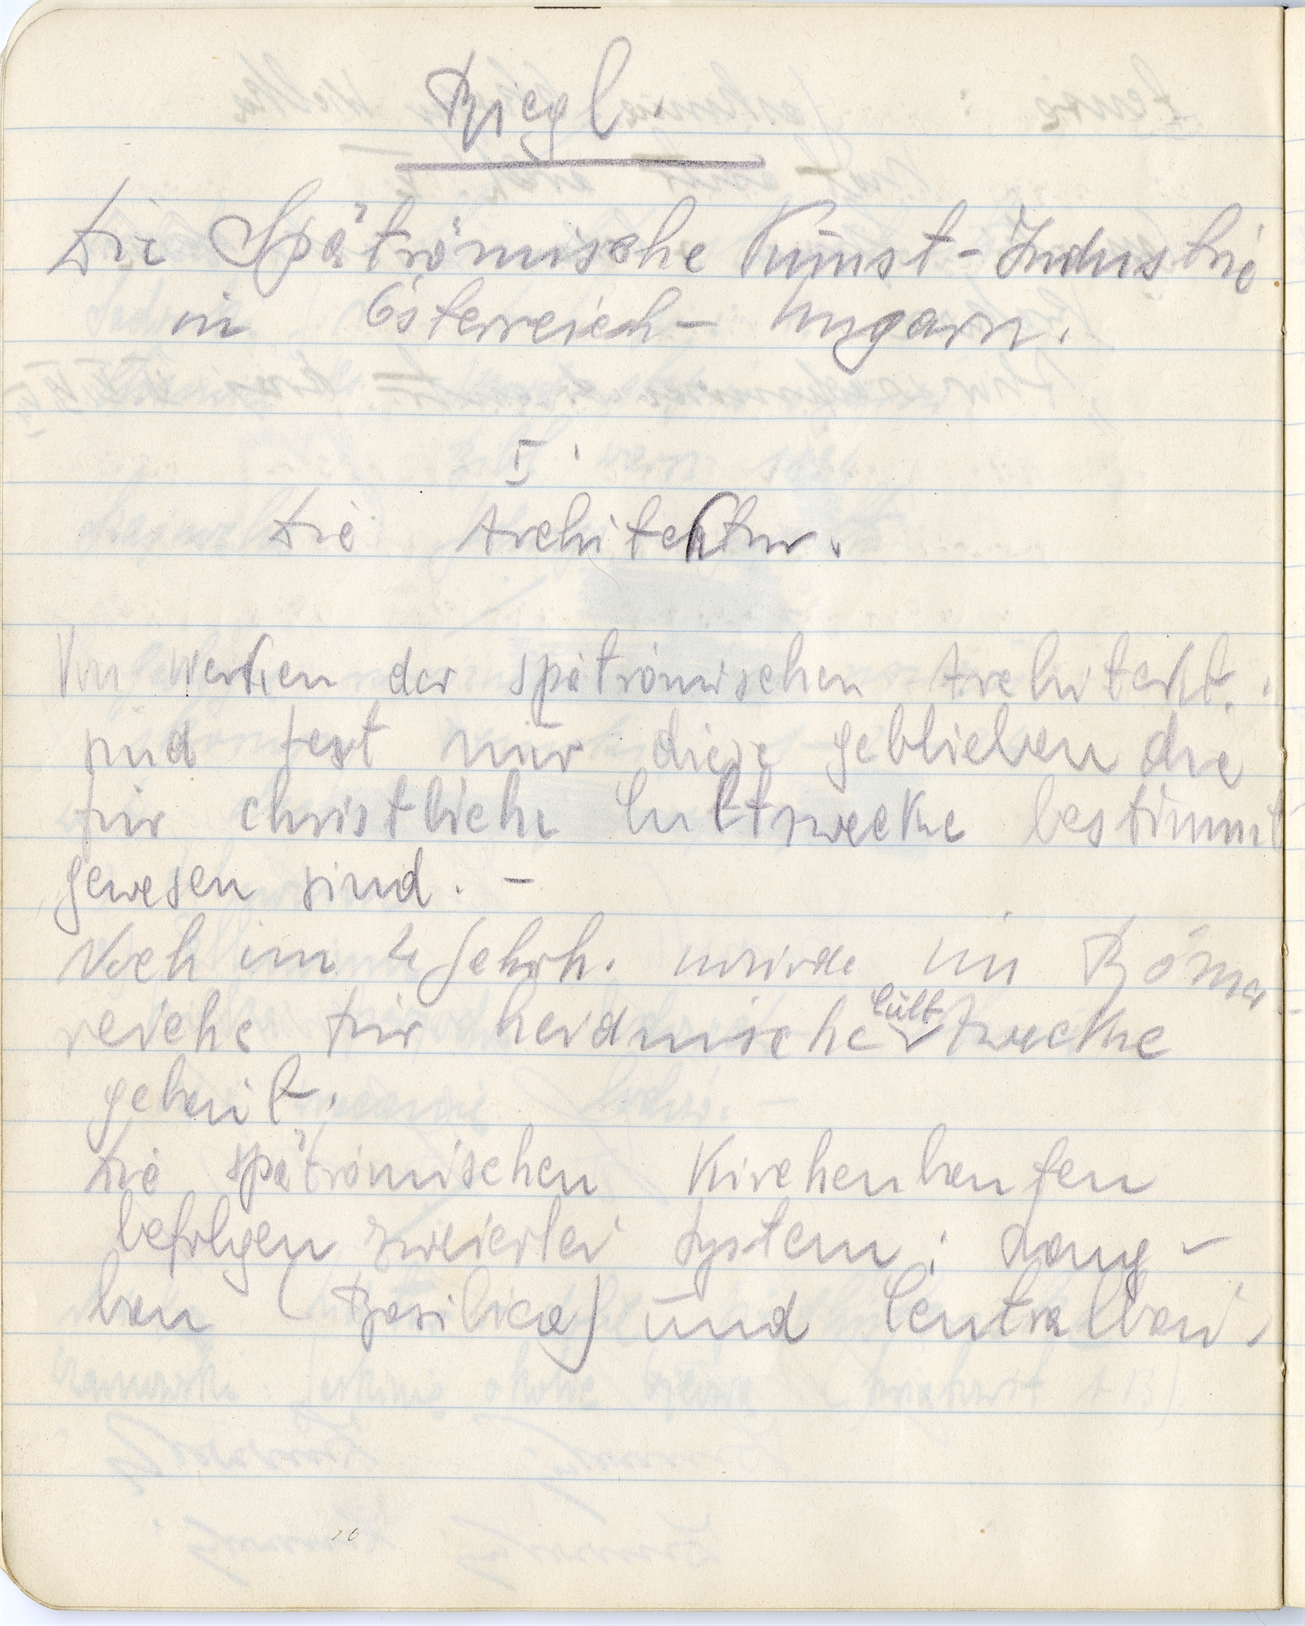 Riegl.
Die Spätrömische Kunst-Industrie
in Österreich-Ungarn.
I.
Die Architektur.
Von Werken der spätrömischen Architekt.
sind fest nur diese geblieben die
für christliche Cultzwecke bestimmt
gewesen sind. -
Noch im 4 Jahrh. wurde im Römer-
reiche für heidnische Cult zwecke
gebaut.
Die spätrömischen Kirchenbauten
befolgen zweierlei System: Lang-
bau (Basilica) und Centralbau.